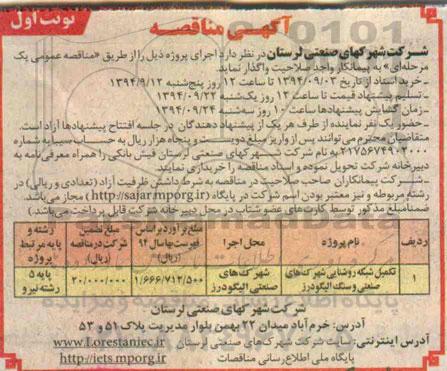 نوبت اول
آگهی مناقصه
شرکت شهرکهای صنعتی لرستان در نظر دارد اجرای پروژه ذیل را از طریق «مناقصه عمومی یک
مرحله‌ای» به پیمانکار واجد صلاحیت واگذار نماید.
- خرید اسناد از تاریخ ۱۳۹۴/۰۹/۰۳ تا ساعت ۱۲ روز پنج‌شنبه ۱۳۹۴/۹/۱۲
- تسلیم پیشنهاد قیمت تا ساعت ۱۳ روز یکشنبه ۱۳۹۴/۰۹/۲۲
- زمان گشایش پیشنهادها ساعت ۱۰ روز سه‌شنبه ۱۳۹۴/۰۹/۲۴
- حضور یک نفر نماینده از طرف هر یک از پیشنهاد دهندگان در جلسه افتتاح پیشنهادها آزاد است.
متقاضیان محترم می‌توانند پس از واریز مبلغ دویست و پنجاه هزار ریال به حساب سیبا به شماره
۲۱۷۵۶۷۴۹۰۲۰۰۰ به نام شرکت شهرکهای صنعتی لرستان فیش بانکی را همراه معرفی‌نامه به
دبیرخانه شرکت تحویل نموده و اسناد مناقصه را خریداری نمایند.
- شرکت پیمانکاران صاحب صلاحیت در مناقصه به شرط داشتن ظرفیت آزاد (تعدادی و ریالی) در
رشته مربوطه و نیز معتبر بودن اسم شرکت در پایگاه (http://sajar.mporg.ir) مجاز می‌باشد.
ضمنا مبلغ مذکور توسط کارت‌های عضو شتاب در محل دبیرخانه شرکت قابل پرداخت می‌باشد.
ردیف نام پروژه محل اجرا مبلغ برآورد بر اساس فهرست بهای سال ۹۴ (ریال) مبلغ تضمین شرکت در مناقصه (ریال) رشته و پایه مرتبط پروژه
۱ تکمیل شبکه روشنایی شهرک‌های صنعتی و سنگ الیگودرز شهرک‌های صنعتی الیگودرز ۱/۶۶۶/۷۱۲/۵۰۰ ۲۰/۰۰۰/۰۰۰ پایه ۵ رشته نیرو
شرکت شهرک های صنعتی لرستان
آدرس: خرم آباد میدان ۲۲ بهمن بلوار مدیریت پلاک ۵۱ و ۵۳
آدرس اینترنتی: سایت شرکت شهرک‌های صنعتی لرستان www.Lorestaniec.ir
پایگاه ملی اطلاع رسانی مناقصات http://iets.mporg.ir